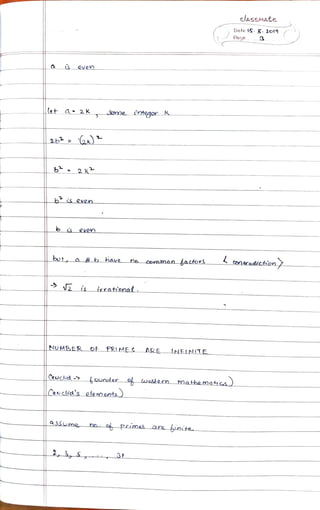 classmate
Date 15.8.2019
Page 3
a is even
let a = 2k , some integer k
2b² = (2k)²
b² = 2k²
b² is even
b is even
but, a & b have no common factors < contradiction >
→ √2 is irrational.
NUMBER OF PRIMES ARE INFINITE
Euclid → founder of western mathematics)
(Euclid's elements)
assume no. of primes are finite
2, 3, 5, ...., 31